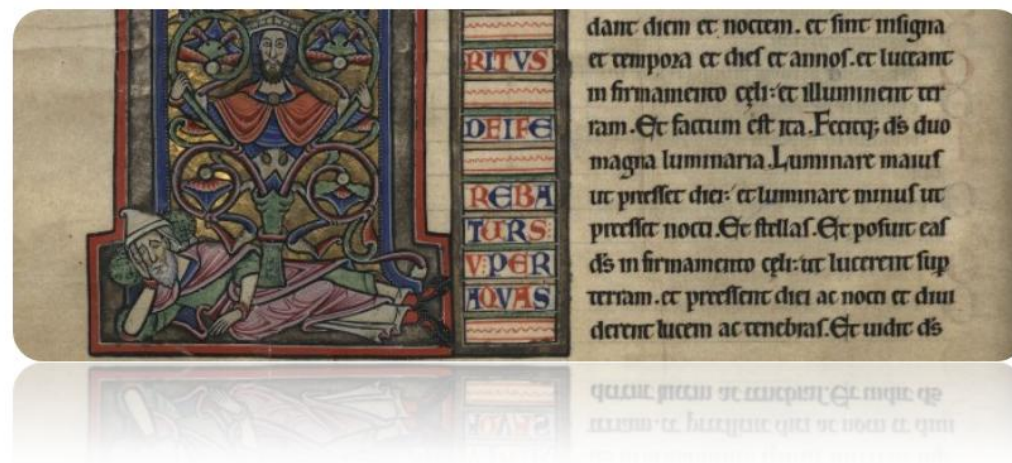 RITVS
DEIFE
REBA
TURS
VPER
AQVAS
dant diem et noctem. et sint insigna
et tempora et dies et annos. et luceant
in firmamento cęli: et illuminent ter
ram. Et factum est ita. Fecitq; ds duo
magna luminaria. Luminare maius
ut preesset diei: et luminare minus ut
preesset nocti. Et stellas. Et posuit eas
ds in firmamento cęli: ut lucerent sup
terram. et preessent diei ac nocti et diui
derent lucem ac tenebras. Et uidit ds